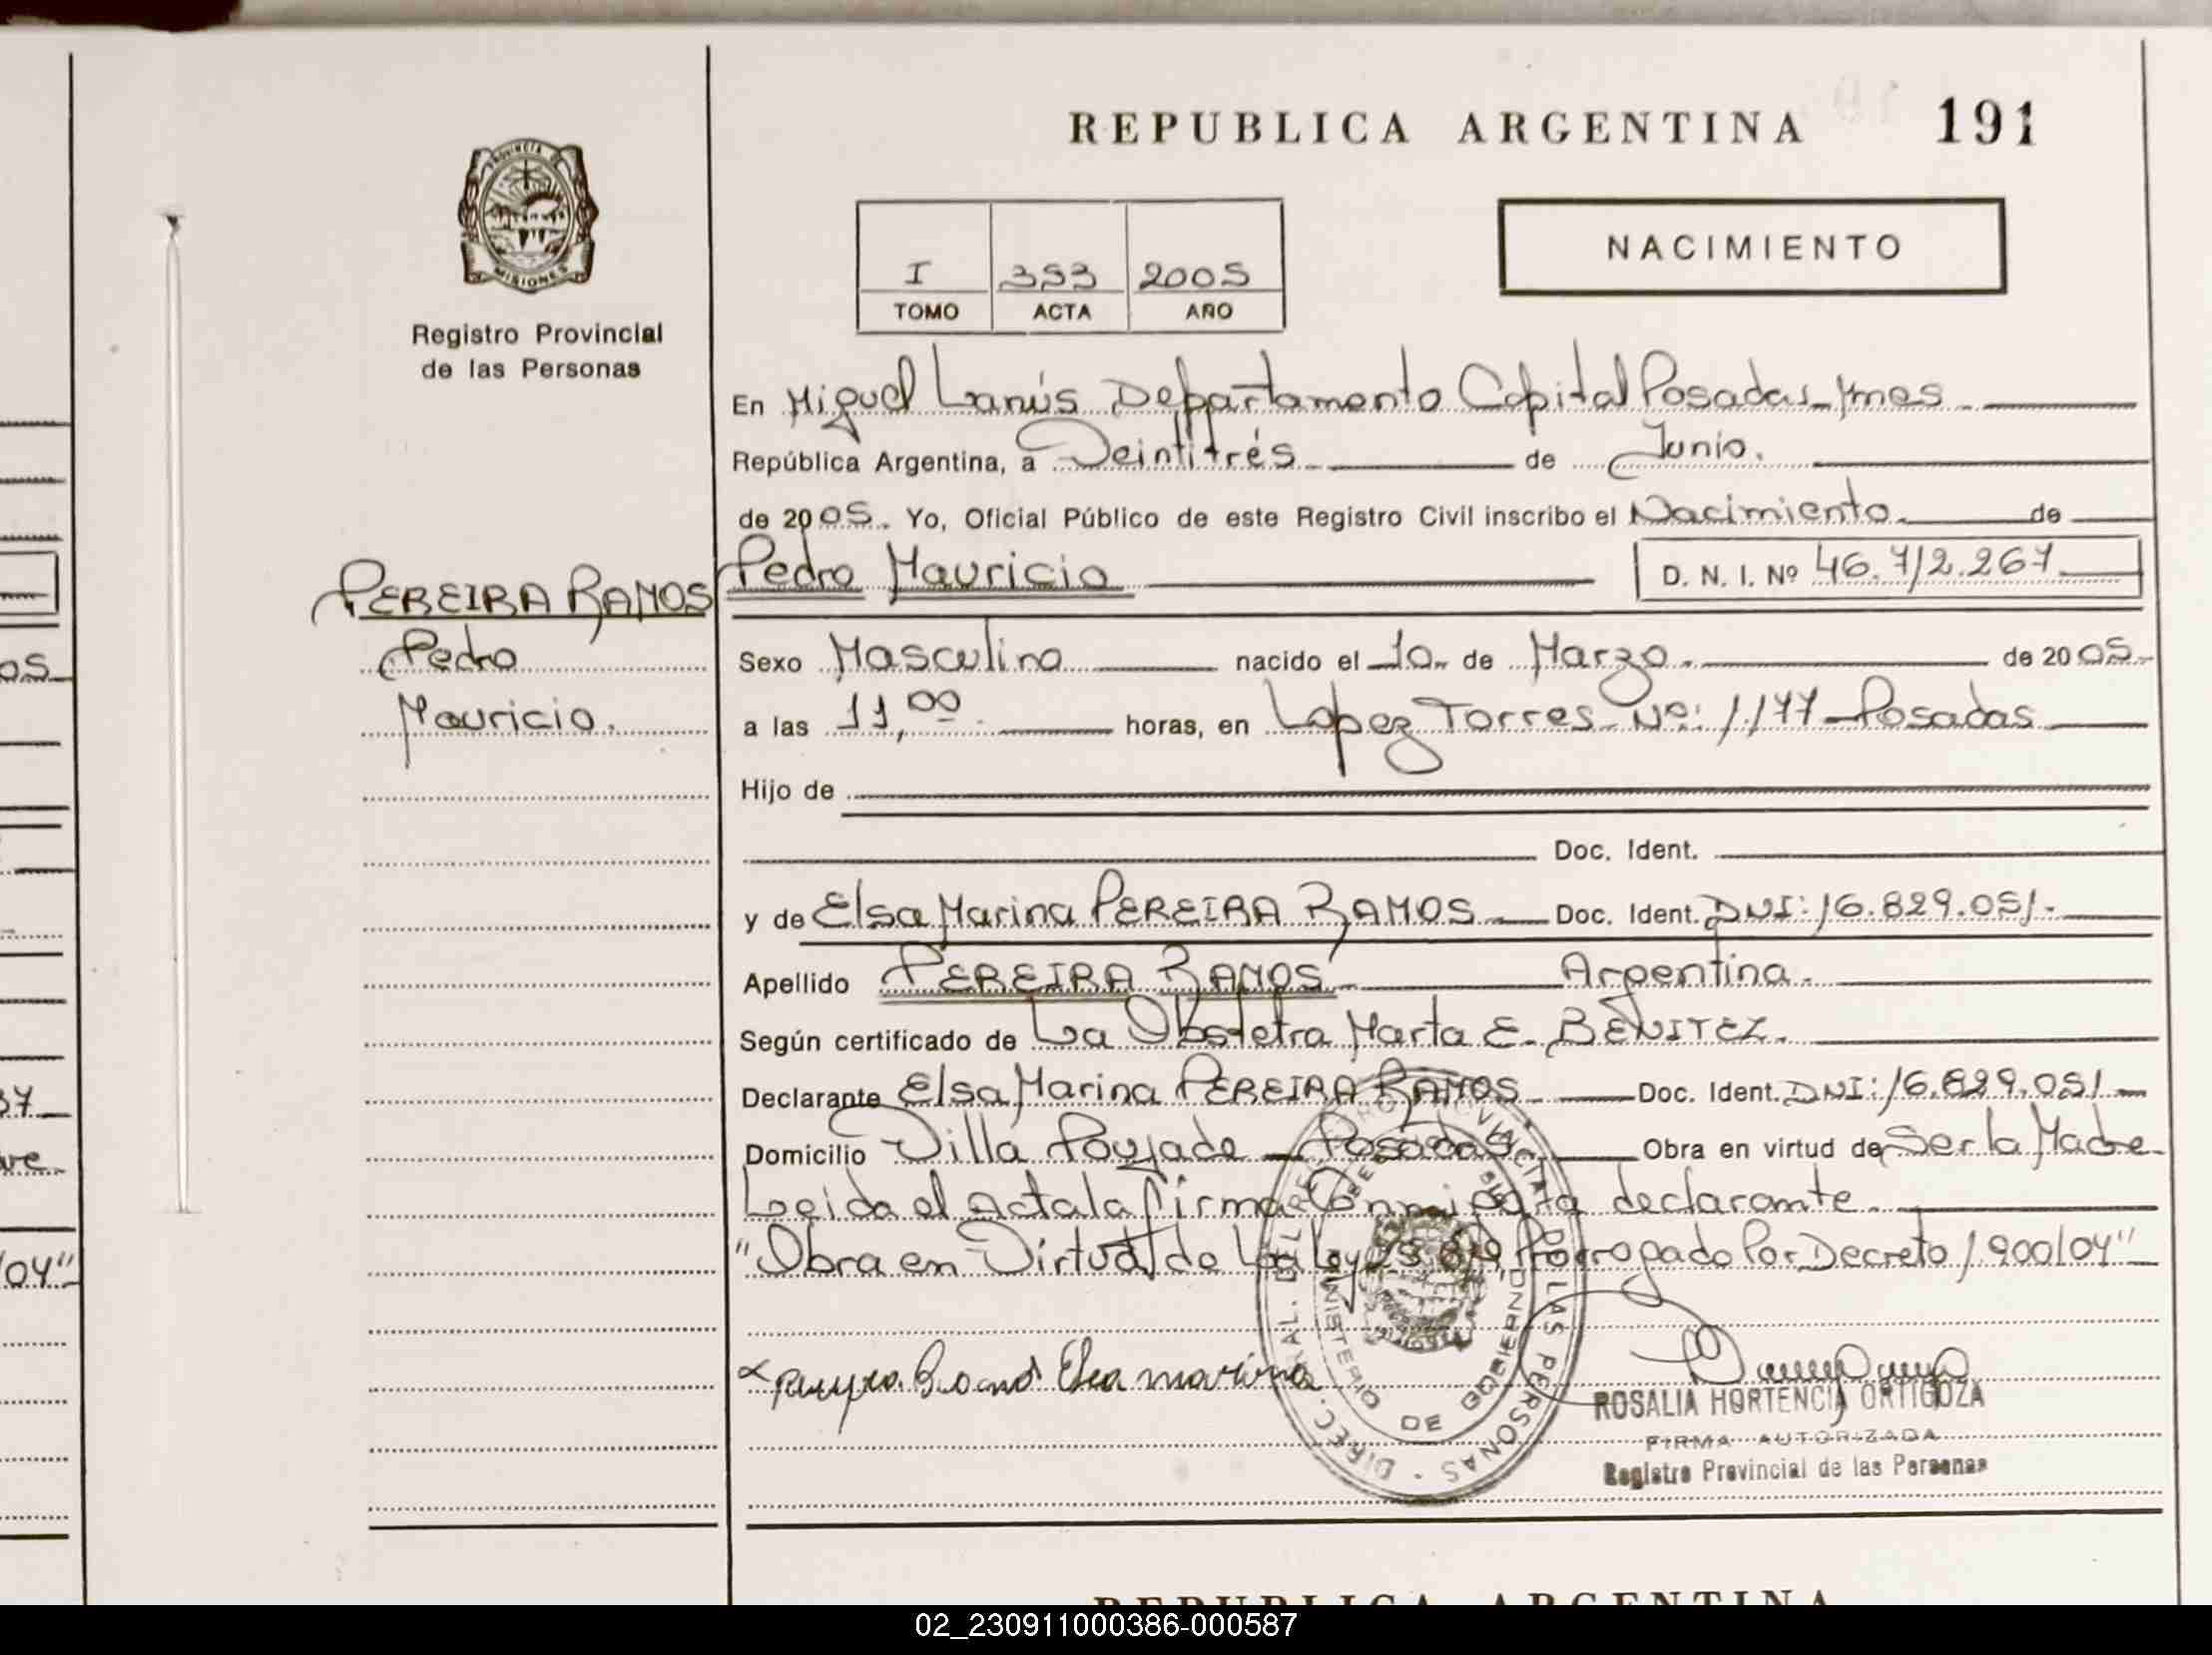 REPUBLICA ARGENTINA 191
PROVINCIA DE
MISIONES
Registro Provincial
de las Personas
I 353 2005
TOMO ACTA AÑO
NACIMIENTO
En Miguel Lanús Departamento Capital Posadas Mnes
República Argentina, a Veintitrés de Junio.
de 2005. Yo, Oficial Público de este Registro Civil inscribo el Nacimiento de
PEREIRA RAMOS Pedro Mauricio D. N. I. Nº 46.712.267
Pedro
Mauricio.
Sexo Masculino nacido el 10 de Marzo. de 2005
a las 11,00 horas, en Lopez Torres Nº: 1.177 Posadas
Hijo de
Doc. Ident.
y de Elsa Marina PEREIRA RAMOS Doc. Ident. DNI: 16.829.051.
Apellido PEREIRA RAMOS Argentina.
Según certificado de La Obstetra Marta E. BENITEZ.
Declarante Elsa Marina PEREIRA RAMOS Doc. Ident. DNI: 16.829.051
Domicilio Villa Poujade Posadas Obra en virtud de Ser la Madre
Leida el Acta la firma Conmigo la declarante
"Obra en Virtud de La Ley 25.819 Prorrogado Por Decreto 1.900/04"
Elsa marina
DIREC. GRAL. DEL REG. PROVINCIAL DE LAS PERSONAS
MINISTERIO DE GOBIERNO
ROSALIA HORTENCIA ORTIGOZA
FIRMA AUTORIZADA
Registro Provincial de las Personas
REPUBLICA ARGENTINA
02_230911000386-000587